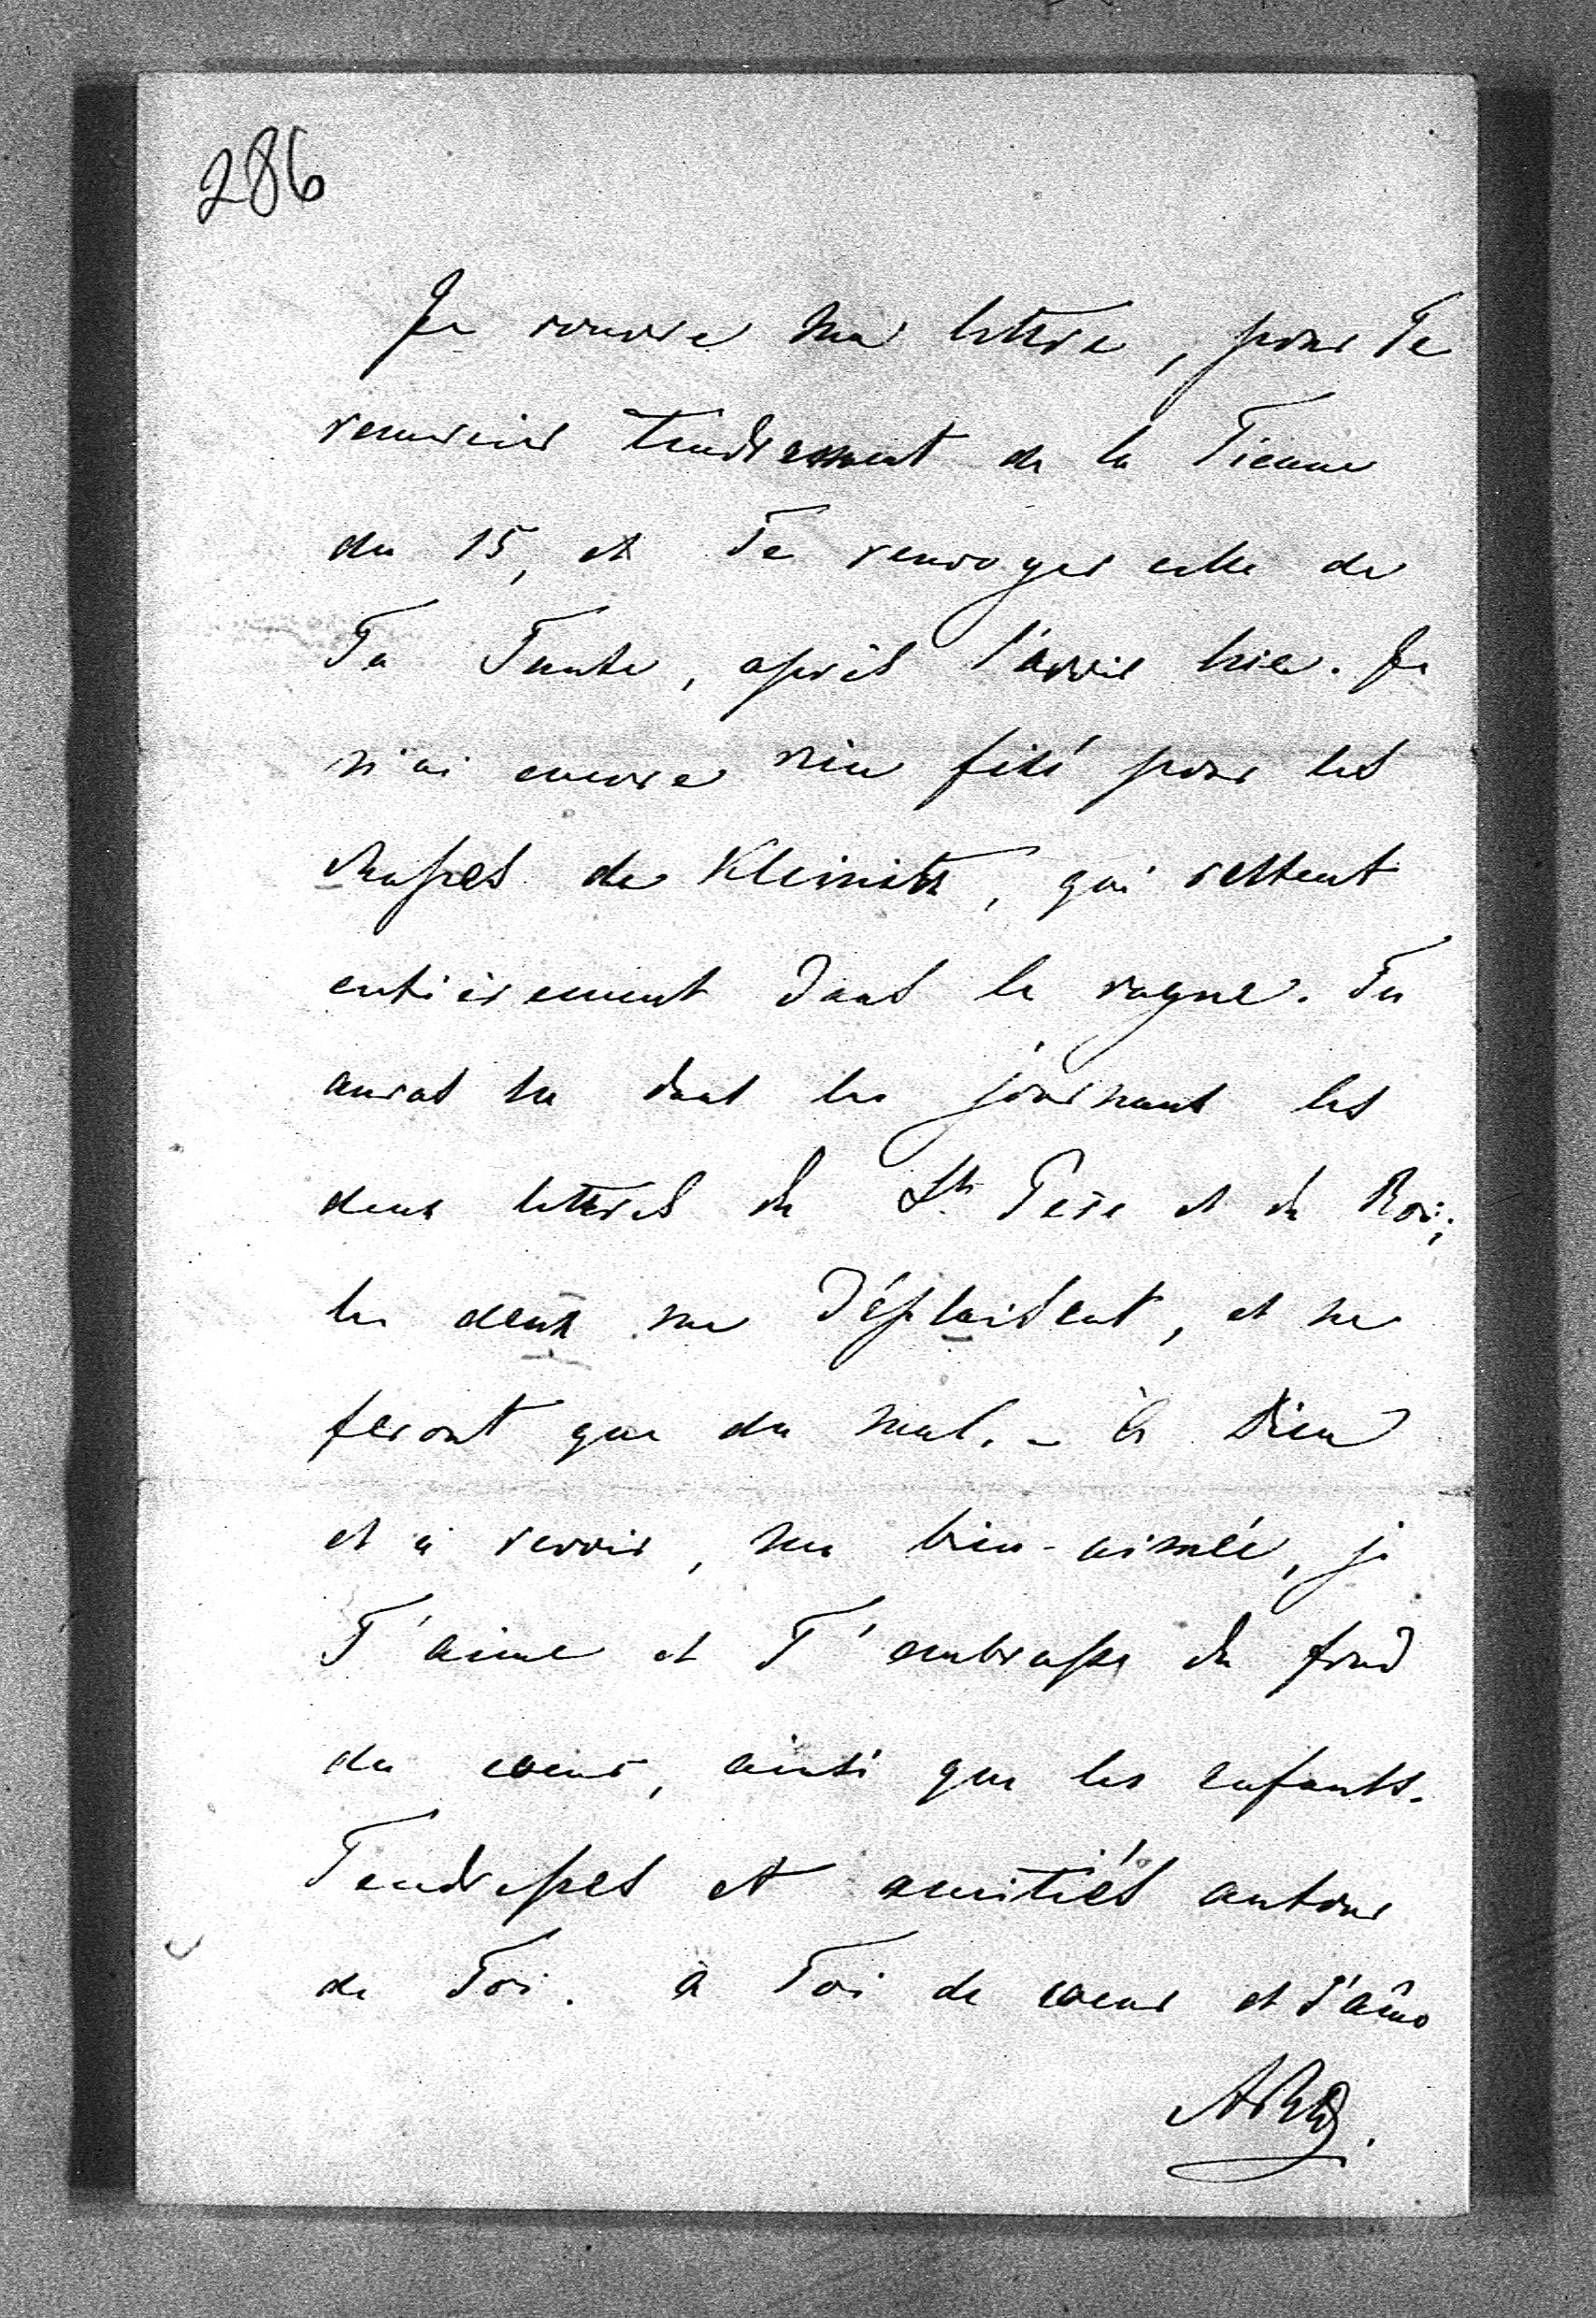 286
Je rouvre ma lettre, pour Te
remercier tendrement de la Tienne
du 15, et Te renvoyer celle de
Ta Tante, après l'avoir lue. Je
n'ai encore rien fixé pour les
chasses de Kleinitz, qui restent
entièrement dans le vague. Tu
auras lu dans les journaux les
deux lettres du St. Père et du Roi;
les deux me déplaisent, et ne
feront que du mal. – à Dieu
et à revoir, ma bien-aimée, je
T'aime et T'embrasse du fond
du coeur, ainsi que les enfants.
Tendresses et amitiés autour
de Toi. à Toi de coeur et d'âme